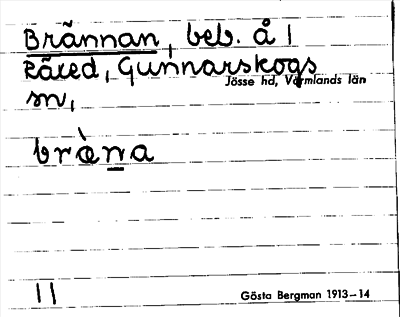 Brännan, beb. å 1
Räxed, Gunnarskogs
Jösse hd, Värmlands län
sn,
bræ̀na
11
Gösta Bergman 1913–14